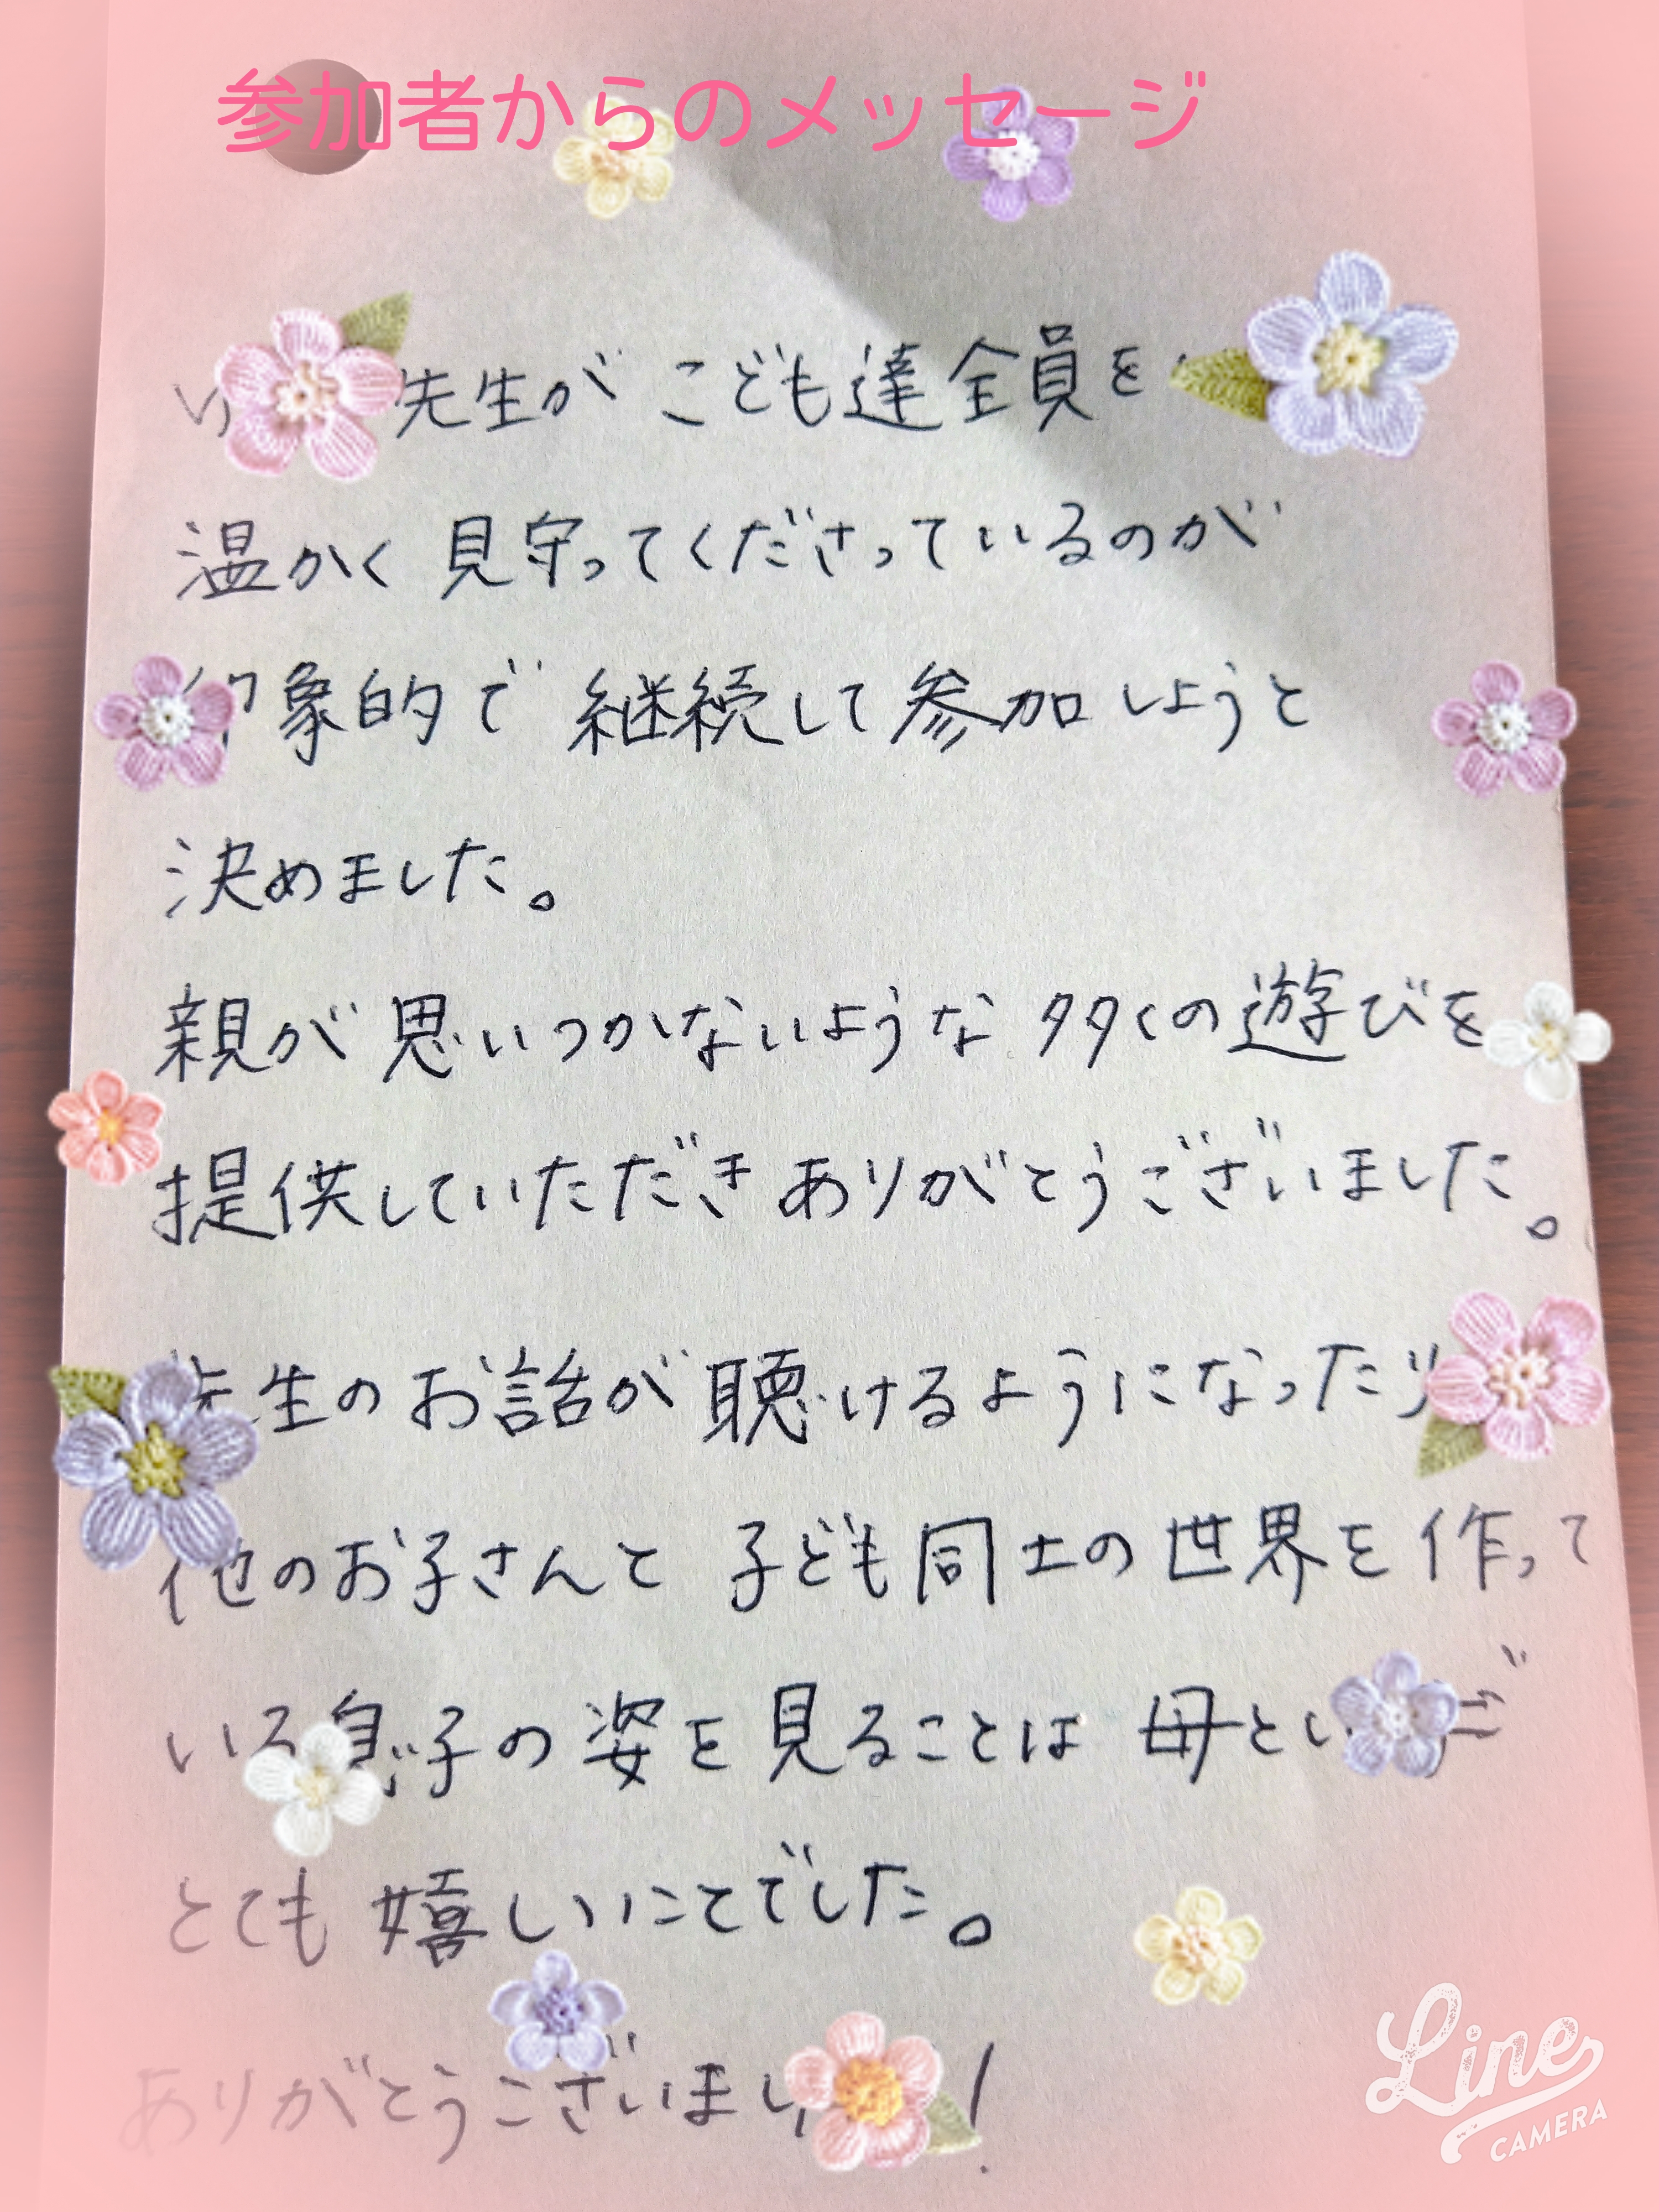 参加者からのメッセージ
先生が こども達全員を
温かく 見守ってくださっているのが
印象的で 継続して参加しようと
決めました。
親が思いつかないような 多くの遊びを
提供していただき ありがとうございました。
先生のお話が聴けるようになったり
他のお子さんと 子ども同士の世界を作って
いる息子の姿を見ることは 母とし
とても 嬉しいことでした。
ありがとうございまし !
Line
CAMERA